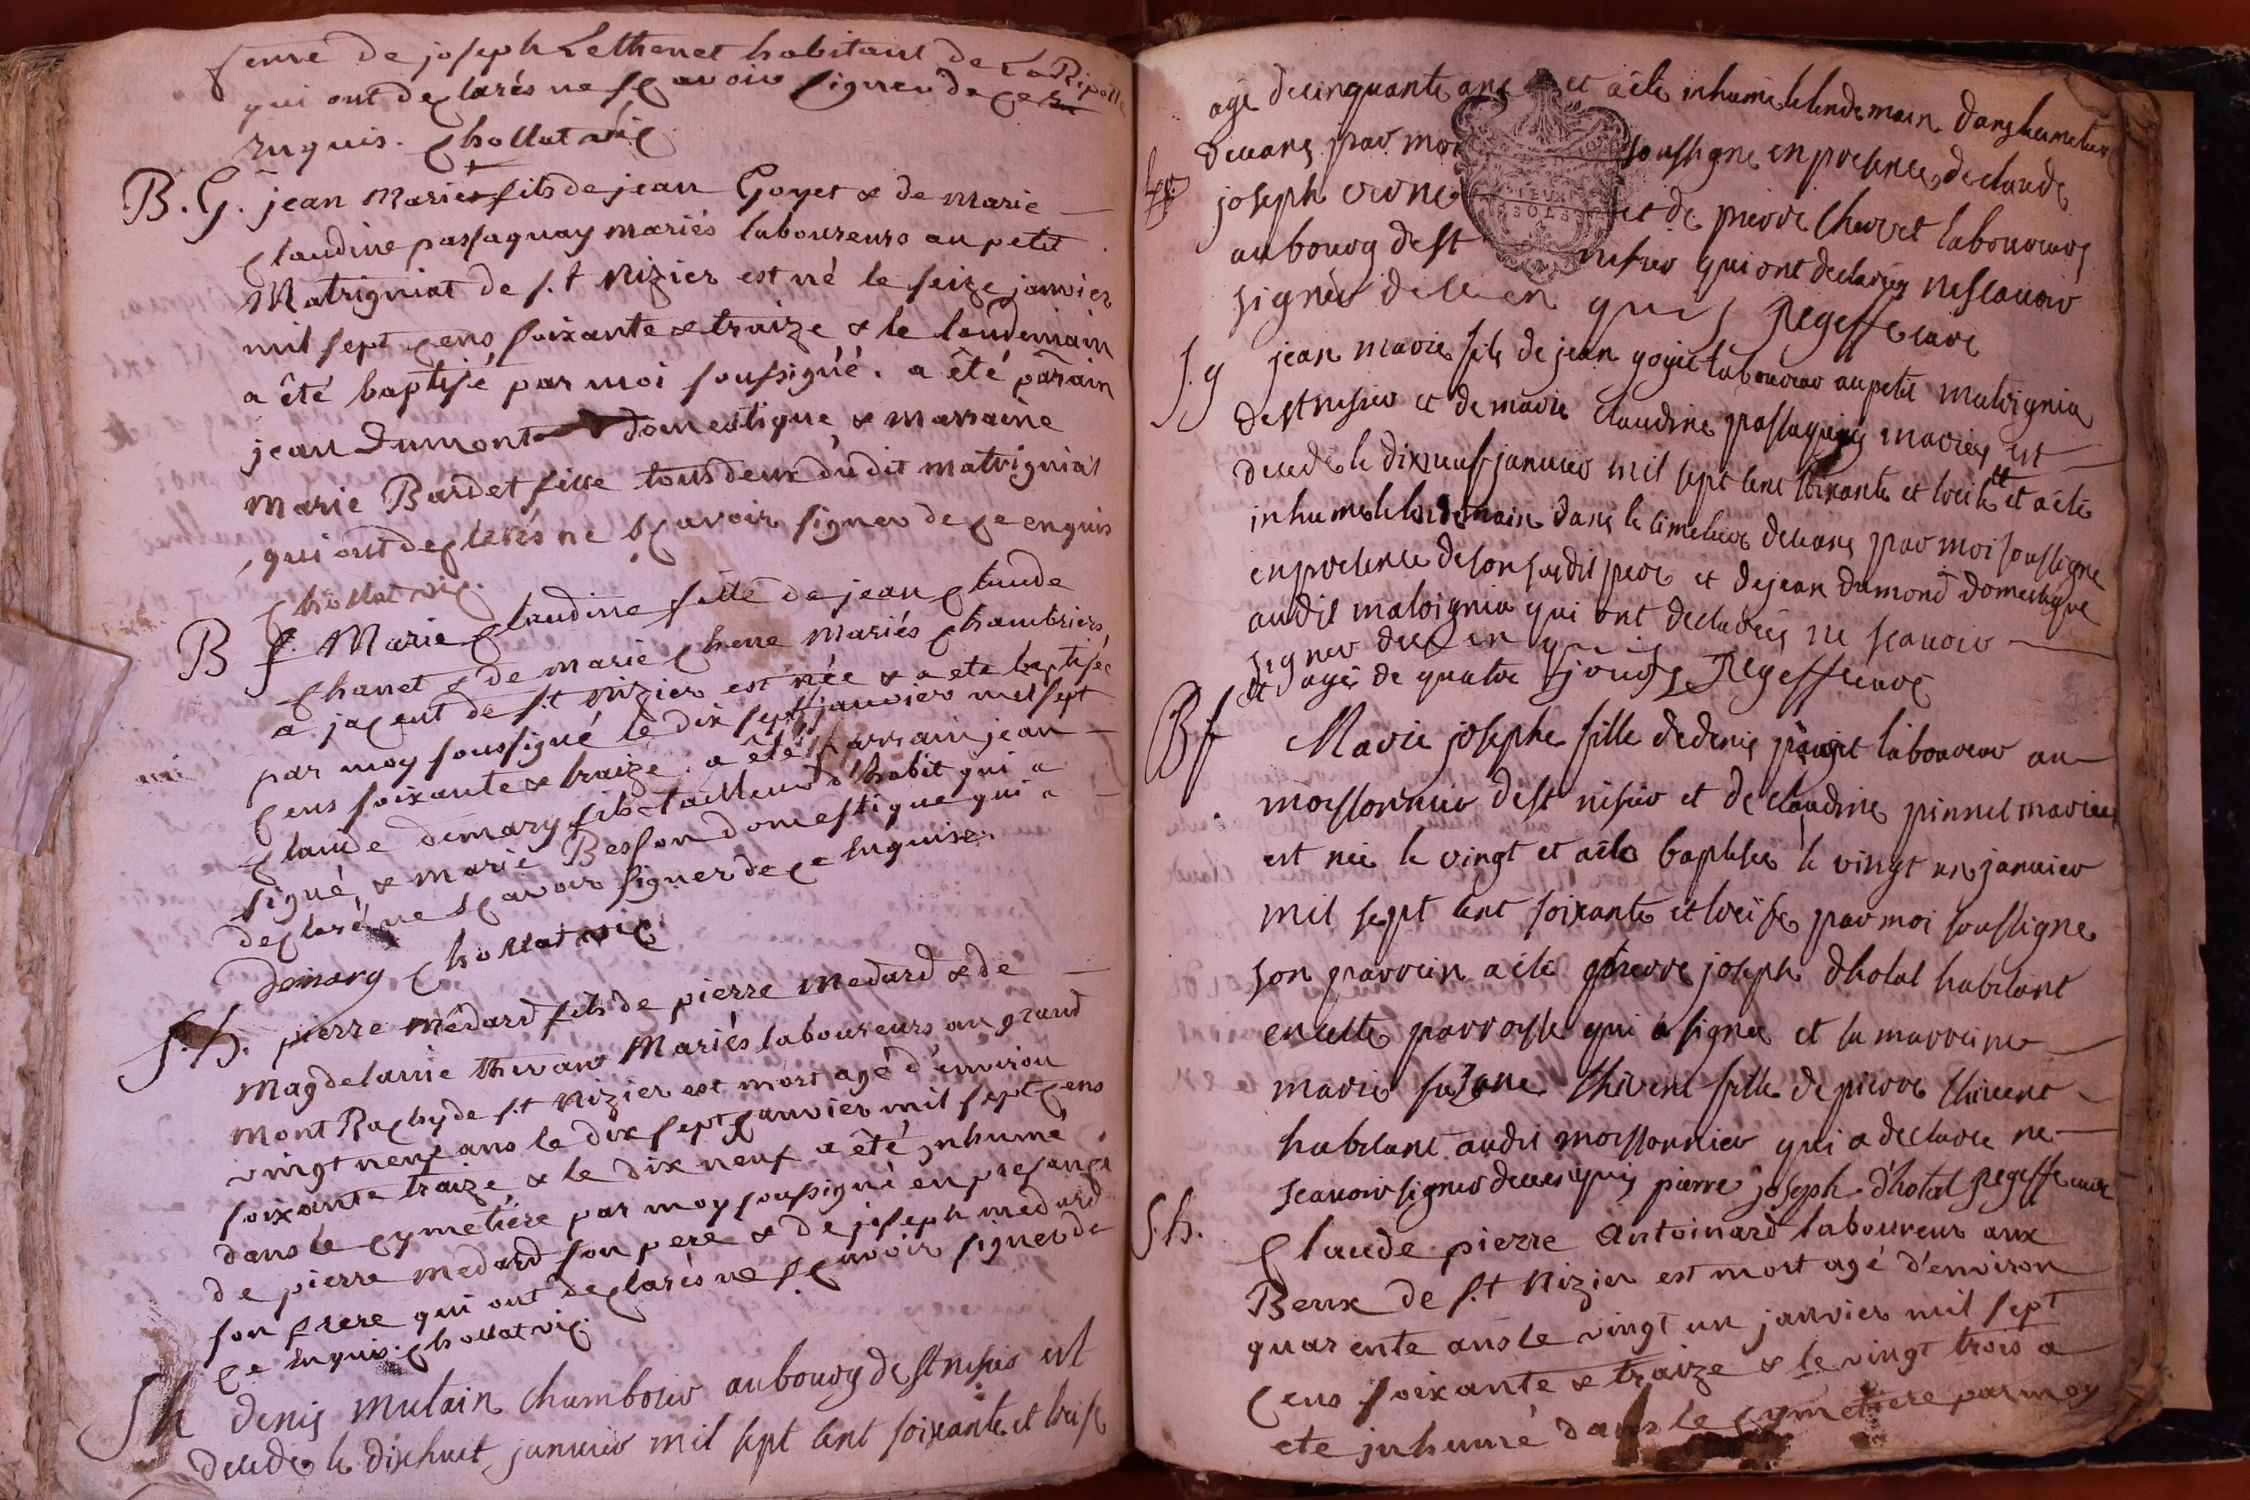 femme de joseph Lethenet habitant de La Ripette
qui ont declarés ne sçavoir signer de ce
enquis. Chollat vic.
B. G. jean Marie fils de jean Goyet & de Marie
Claudine passaquay mariés laboureurs au petit
Matrigniat de s.t Nizier est né le seize janvier
mil sept cens soixante & traize & le landemain
a êté baptisé par moi soussigné. a êté parain
jean Dumont domestique & marraine
Marie Bardet fille tous deux du dit matrigniat
qui ont declarés ne sçavoir signer de ce enquis
Chollat vic.
B f. Marie Claudine fille de jean Claude
Chanet & de Marie Chene Mariés Chambriers
a jacent de s.t Nizier est née & a ete baptisée
par moy soussigné le dix sept janvier mil sept
cens soixante & traize. a êté parrain jean
Claude demary fils tailleur d'habit qui a
signé, & marie Besson domestique qui a
declaré ne sçavoir signer de ce enquise.
Demary Chollat vic.
S. h. pierre Médard fils de pierre Medard & de
Magdelaine thevan Mariés laboureurs au grand
Mont Rachy de s.t Nizier est mort agé d'environ
vingt neuf ans le dix sept janvier mil sept cens
soixante traize & le dix neuf a êté inhumé
dans le cymetiére par moy soussigné en presance
de pierre Medard son pere & de joseph medard
son frere qui ont declarés ne sçavoir signer de
ce enquis. Chollat vic.
S h denis mutain chambrier au bourg de st nisier est
decede le dixhuit janvier mil sept cent soixante et treise
agé de cinquante ans et a été inhumé le lendemain dans le cimetiere
de ceans par moi soussigné en presence de claude
joseph et de pierre Chanet laboureurs
au bourg de st nisier qui ont declarés ne scavoir
signer de ce en quis Regeffe curé
S. g jean marie fils de jean goyet laboureur au petit matrignia
de st nisier et de marie claudine passaquay mariés est
decede le dixneuf janvier mil sept cent soixante et treise et a été
inhumé le lendemain dans le cimetiere de ceans par moi soussigné
en presence de son susdit pere et de jean dumond domestique
audit matrignia qui ont declarés ne scavoir
signer de ce en quis
et agé de quatre jours Regeffe curé
B f Marie josephe fille de denis laboureur au
moissonnier de st nisier et de claudine pinnel mariés
est née le vingt et a été baptisée le vingt un janvier
mil sept cent soixante et treise par moi soussigné
son parrein a été pierre joseph dhotal habitant
en cette parroisse qui a signé et sa marreine
marie susane thivent fille de pierre thivent
habitant audit moissonnier qui a declaré ne
scavoir signer de ce enquis pierre joseph d'hotal Regeffe curé
S. h. Claude pierre Antoinard laboureur aux
Beux de s.t Nizier est mort agé d'environ
quarente ans le vingt un janvier mil sept
cens soixante & traize & le vingt trois a
ete inhumé dans le cymetiere par moy